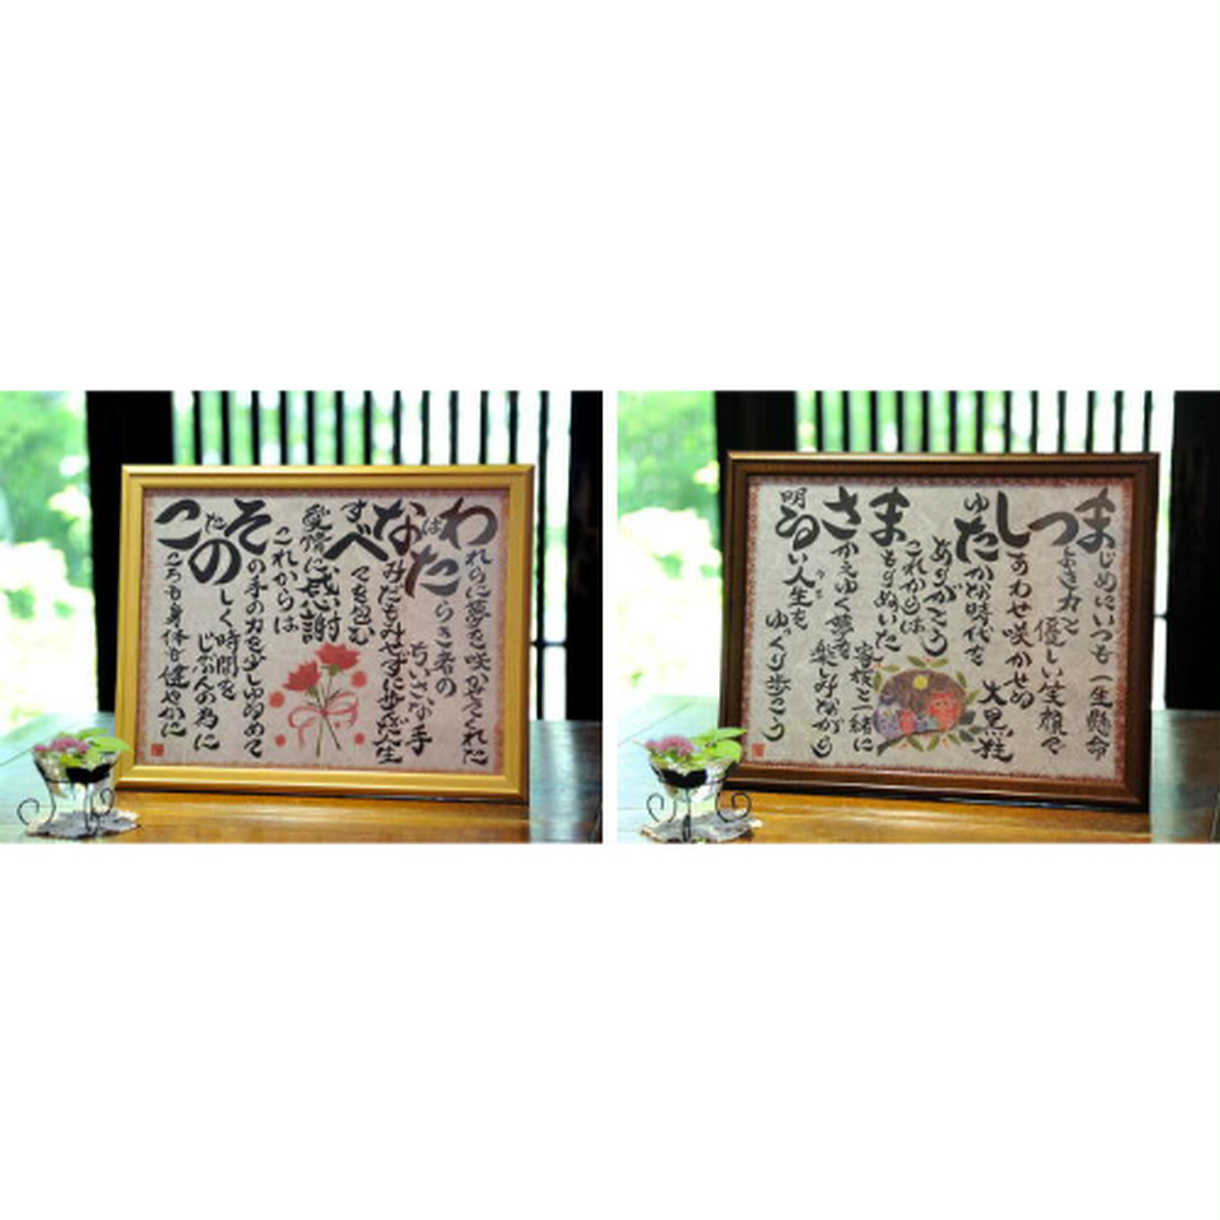 われらに夢を咲かせてくれた
はたらき者の
ちいさな手
なみだもみせずに歩んだ人生
すべてを包む
愛情に感謝
これからは
その手の力を少しゆるめて
たのしく時間を
じぶんの為に
こころも身体も健やかに
まじめにいつも一生懸命
つよき力と優しい笑顔で
しあわせ咲かせる大黒柱
ゆたかな時代を
ありがとう
これからは
まもりぬいた家族と一緒に
さかえゆく夢を楽しみながら
明るい人生を
ゆっくり歩こう